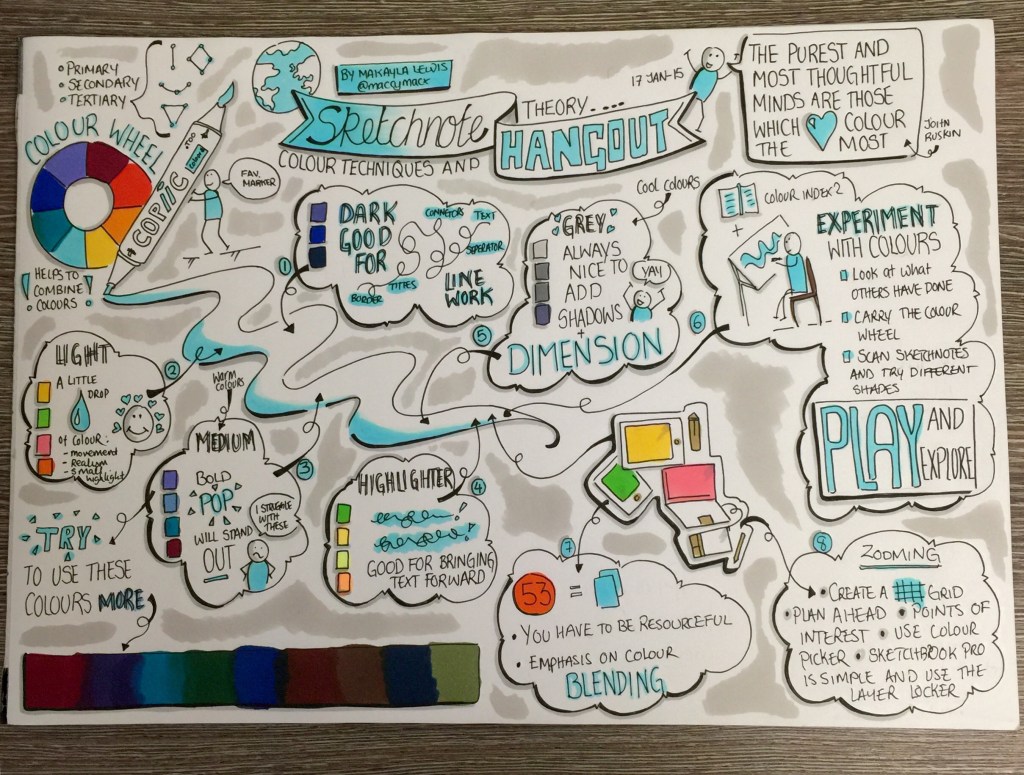 PRIMARY
SECONDARY
TERTIARY
COLOUR WHEEL
HELPS TO
COMBINE
COLOURS
COPIC
FAV.
MARKER
BY MAKAYLA LEWIS
@maccymacx
Sketchnote
THEORY....
HANGOUT
17 JAN-15
COLOUR TECHNIQUES AND
THE PUREST AND
MOST THOUGHTFUL
MINDS ARE THOSE
WHICH COLOUR
THE MOST
JOHN
RUSKIN
1
DARK
GOOD
FOR
CONNECTORS
TEXT
SEPERATOR
TITLES
BORDER
LINE
WORK
2
LIGHT
A LITTLE
DROP
of COLOUR:
- movement
- Realism
- small
highlight
3
Warm
colours
MEDIUM
BOLD
POP
WILL STAND
OUT
I STRUGGLE
WITH
THESE
4
HIGHLIGHTER
GOOD FOR BRINGING
TEXT FORWARD
5
Cool colours
GREY
ALWAYS
NICE TO
ADD
SHADOWS
+
DIMENSION
YAY!
6
COLOUR INDEX?
+
EXPERIMENT
WITH COLOURS
LOOK at what
OTHERS HAVE DONE
CARRY THE COLOUR
WHEEL
SCAN SKETCHNOTES
AND TRY DIFFERENT
SHADES
PLAY AND
EXPLORE
TRY
TO USE THESE
COLOURS MORE
7
53 =
YOU HAVE TO BE RESOURCEFUL
EMPHASIS ON COLOUR
BLENDING
8
ZOOMING
• CREATE A GRID
• PLAN AHEAD • POINTS OF
INTEREST • USE COLOUR
PICKER • SKETCHBOOK PRO
IS SIMPLE AND USE THE
LAYER LOCKER